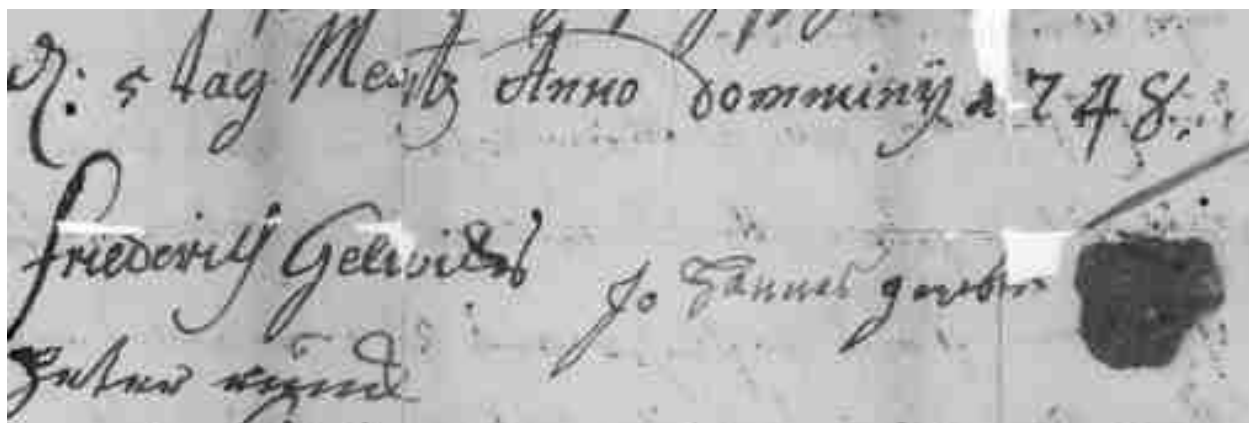 5 tag Mertz Anno domminÿ 1748
Friederich Gelwicks Johannes gerber
Peter